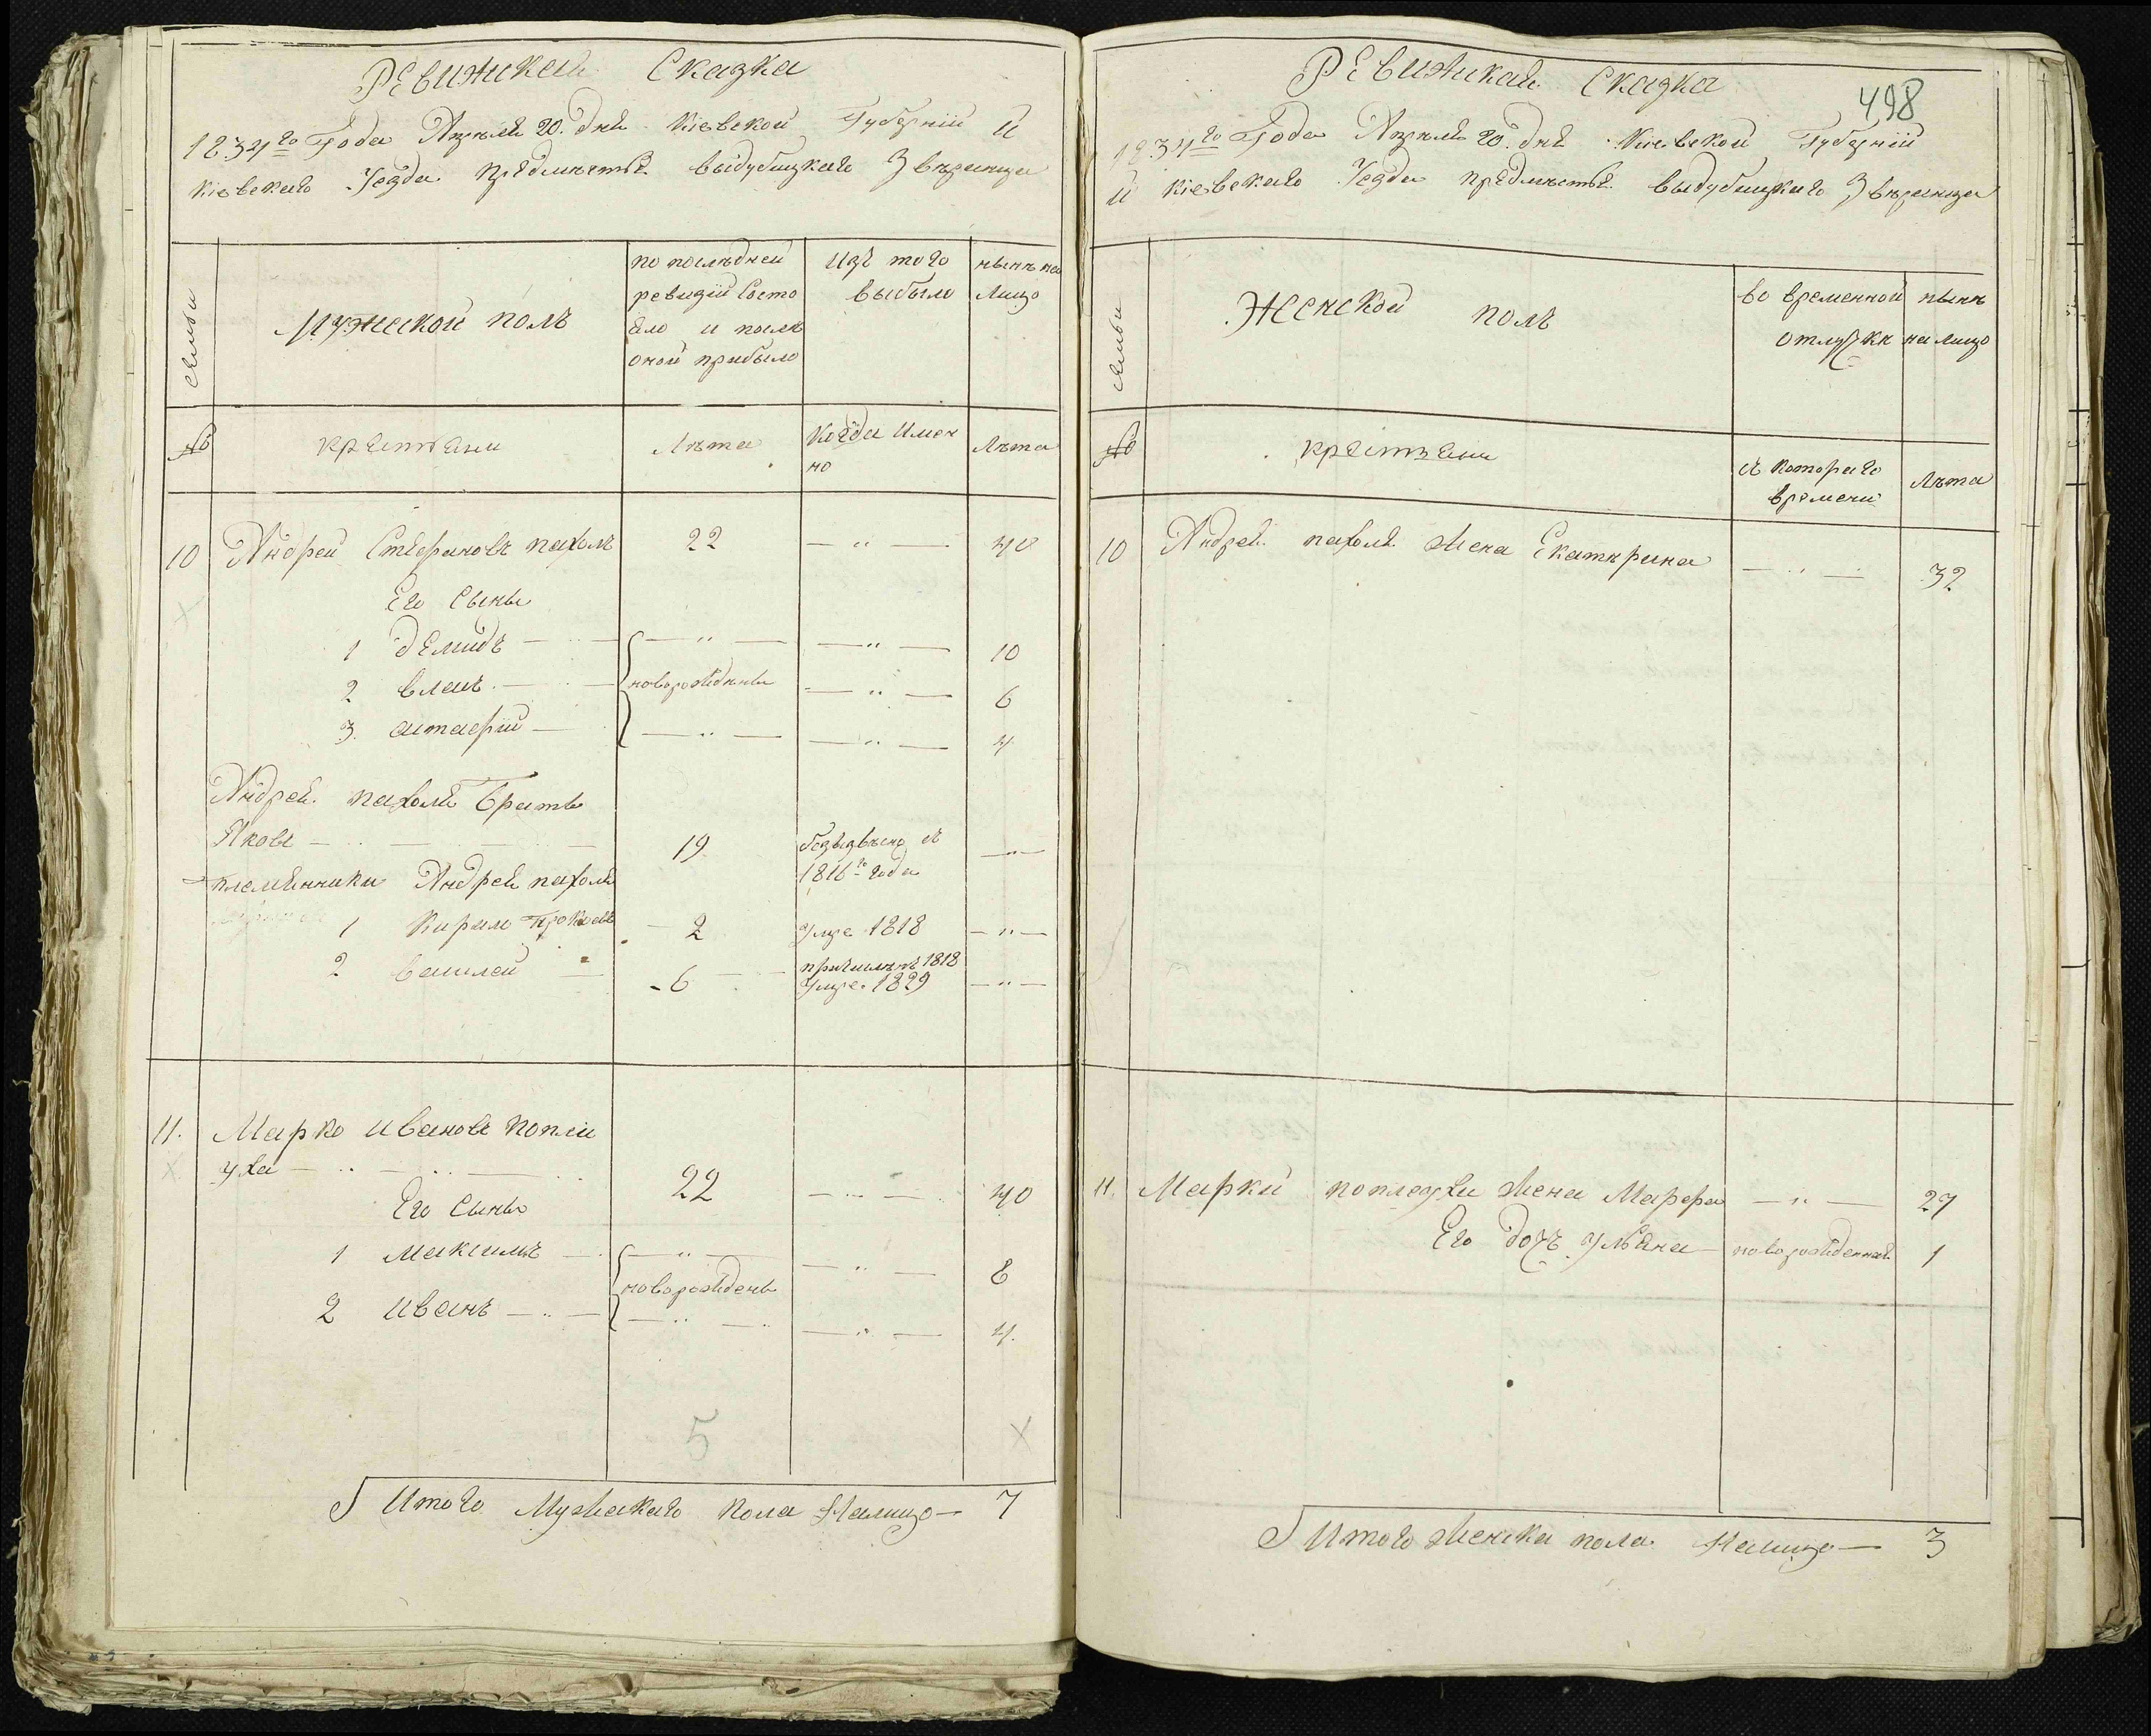 Ревижская Сказка
1834го Года Апрѣля 20. дня Кіевской Губерніи И
Кіевскаго Уезда предмѣстья выдубицкаго Звѣринца
семьи
Мужеской полъ
по послѣдней
ревизіи Состо
яло и послѣ
оной прибыло
Изъ того
выбыло
нынѣ на
Лицо
№
крестьяни
Лѣта
Когда Имен
но
Лѣта
10 Андрей Стефановъ пахолъ 22 — " — 40
Его Сыны
1 демидъ — — " — — " — 10
2 власъ — новорожденны — " — 6
3 астафій — — " — — " — 4
Андрея пахоля Братъ
Яковъ — 19 безызвѣсно съ — " —
1816го года
племянники Андрея пахоля
1 Кирило 2 умре 1818 — " —
2 василей — 6 1818
умре 1829 — " —
11. Марко ивановъ поплѣ
уха — 22 — " — 40
Его Сыны
1 максимъ — — " — — " — 8
2 иванъ — новорождены — " — 4
5
Итого Мужскаго пола Налицо — 7
498
Ревижская Сказка
1834го Года Апрѣля 20. дня Кіевской Губерніи
И Кіевскаго Уезда предмѣстья выдубицкаго Звѣринца
семьи
Женской полъ
во временной
отлучкѣ
нынѣ
на лицо
№
крестьяни
съ котораго
времени
Лѣта
10 Андрея пахоля жена Екатѣрина — " — 32
11. Марки поплеухи жена Марфа — " — 27
Его дочь ульяна — новорожденная 1
Итого женска пола Налицо — 3